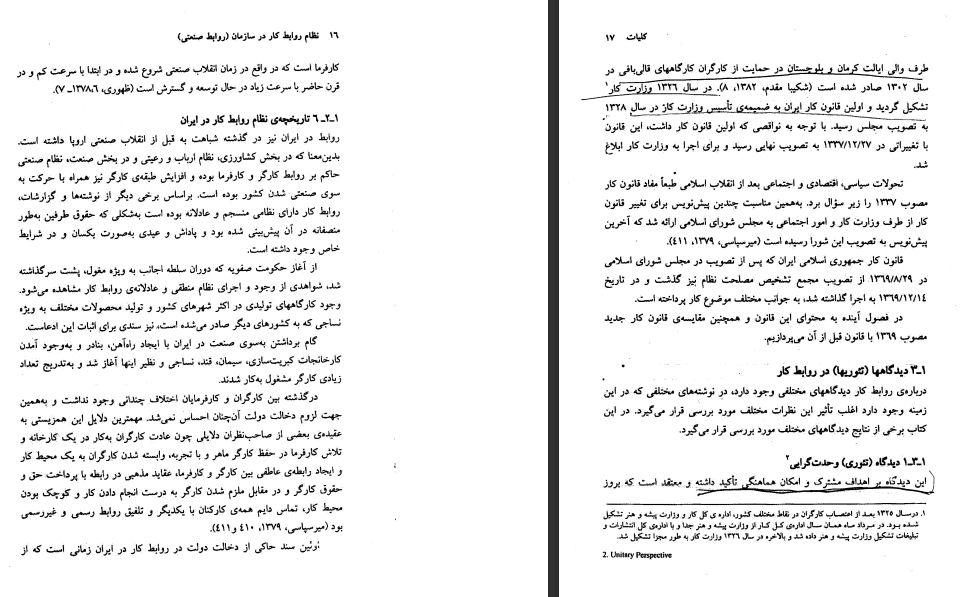 ۱۶ نظام روابط کار در سازمان (روابط صنعتی)
کارفرما است که در واقع در زمان انقلاب صنعتی شروع شده و در ابتدا با سرعت کم و در
قرن حاضر با سرعت زیاد در حال توسعه و گسترش است (ظهوری، ۱۳۷۸،۶ـ ۷).
۱ـ۲ـ ۶ تاریخچه‌ی نظام روابط کار در ایران
روابط در ایران نیز در گذشته شباهت به قبل از انقلاب صنعتی اروپا داشته است.
بدین‌معنا که در بخش کشاورزی، نظام ارباب و رعیتی و در بخش صنعت، نظام صنعتی
حاکم بر روابط کارگر و کارفرما بوده و افزایش طبقه‌ی کارگر نیز همراه با حرکت به
سوی صنعتی شدن کشور بوده است. براساس برخی دیگر از نوشته‌ها و گزارشات،
روابط کار دارای نظامی منسجم و عادلانه بوده است به‌شکلی که حقوق طرفین به‌طور
منصفانه در آن پیش‌بینی شده بود و پاداش و عیدی به‌صورت یکسان و در شرایط
خاص وجود داشته است.
از آغاز حکومت صفویه که دوران سلطه اجانب به ویژه مغول، پشت سرگذاشته
شد، شواهدی از وجود و اجرای نظام منطقی و عادلانه‌ی روابط کار مشاهده می‌شود.
وجود کارگاههای تولیدی در اکثر شهرهای کشور و تولید محصولات مختلف به ویژه
نساجی که به کشورهای دیگر صادر می‌شده است، نیز سندی برای اثبات این ادعاست.
گام برداشتن به‌سوی صنعت در ایران با ایجاد راه‌آهن، بنادر و به‌وجود آمدن
کارخانجات کبریت‌سازی، سیمان، قند، نساجی و نظیر اینها آغاز شد و به‌تدریج تعداد
زیادی کارگر مشغول به‌کار شدند.
درگذشته بین کارگران و کارفرمایان اختلاف چندانی وجود نداشت و به‌همین
جهت لزوم دخالت دولت آن‌چنان احساس نمی‌شد. مهمترین دلایل این همزیستی به
عقیده‌ی بعضی از صاحب‌نظران دلایلی چون عادت کارگران به‌کار در یک کارخانه و
تلاش کارفرما در حفظ کارگر ماهر و با تجربه، وابسته شدن کارگران به یک محیط کار
و ایجاد رابطه‌ی عاطفی بین کارگر و کارفرما، عقاید مذهبی در رابطه با پرداخت حق و
حقوق کارگر و در مقابل ملزم شدن کارگر به درست انجام دادن کار و کوچک بودن
محیط کار، تماس دایم همه‌ی کارکنان با یکدیگر و تلفیق روابط رسمی و غیررسمی
بود (میرسپاسی، ۱۳۷۹، ۴۱۰ و۴۱۱).
اولین سند حاکی از دخالت دولت در روابط کار در ایران زمانی است که از
کلیات ۱۷
طرف والی ایالت کرمان و بلوچستان در حمایت از کارگران کارگاههای قالی‌بافی در
سال ۱۳۰۲ صادر شده است (شکیبا مقدم، ۱۳۸۲، ۸). در سال ۱۳۲۶ وزارت کار۱
تشکیل گردید و اولین قانون کار ایران به ضمیمه‌ی تأسیس وزارت کار در سال ۱۳۲۸
به تصویب مجلس رسید. با توجه به نواقصی که اولین قانون کار داشت، این قانون
با تغییراتی در ۱۳۳۷/۱۲/۲۷ به تصویب نهایی رسید و برای اجرا به وزارت کار ابلاغ
شد.
تحولات سیاسی، اقتصادی و اجتماعی بعد از انقلاب اسلامی طبعاً مفاد قانون کار
مصوب ۱۳۳۷ را زیر سؤال برد. به‌همین مناسبت چندین پیش‌نویس برای تغییر قانون
کار از طرف وزارت کار و امور اجتماعی به مجلس شورای اسلامی ارائه شد که آخرین
پیش‌نویس به تصویب این شورا رسیده است (میرسپاسی، ۱۳۷۹، ۴۱۱).
قانون کار جمهوری اسلامی ایران که پس از تصویب در مجلس شورای اسلامی
در ۱۳۶۹/۸/۲۹ از تصویب مجمع تشخیص مصلحت نظام نیز گذشت و در تاریخ
۱۳۶۹/۱۲/۱۴ به اجرا گذاشته شد، به جوانب مختلف موضوع کار پرداخته است.
در فصول آینده به محتوای این قانون و همچنین مقایسه‌ی قانون کار جدید
مصوب ۱۳۶۹ با قانون قبل از آن می‌پردازیم.
۱ـ۳ دیدگاهها (تئوریها) در روابط کار
درباره‌ی روابط کار دیدگاههای مختلفی وجود دارد، در نوشته‌های مختلفی که در این
زمینه وجود دارد اغلب تأثیر این نظرات مختلف مورد بررسی قرار می‌گیرد. در این
کتاب برخی از نتایج دیدگاههای مختلف مورد بررسی قرار می‌گیرد.
۱ـ۳ـ۱ دیدگاه (تئوری) وحدت‌گرایی۲
این دیدگاه بر اهداف مشترک و امکان هماهنگی تأکید داشته و معتقد است که بروز
۱. درسال ۱۳۲۵ بعد از اعتصاب کارگران در نقاط مختلف کشور، اداره ی کل کار و وزارت پیشه و هنر تشکیل
شده بود. در مرداد ماه همان سال اداره‌ی کل کار از وزارت پیشه و هنر جدا و با اداره‌ی کل انتشارات و
تبلیغات تشکیل وزارت پیشه و هنر داده شد و بالاخره در سال ۱۳۲۶ وزارت کار به طور مجزا تشکیل شد.
2. Unitary Perspective